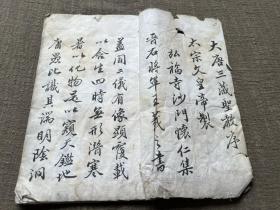 大唐三藏聖教序
太宗文皇帝製
弘福寺沙門懷仁集
晉右將軍王羲之書
蓋聞二儀有像顯覆載
以含生四時無形潛寒
暑以化物是以窺天鑑地
庸愚皆識其端明陰洞